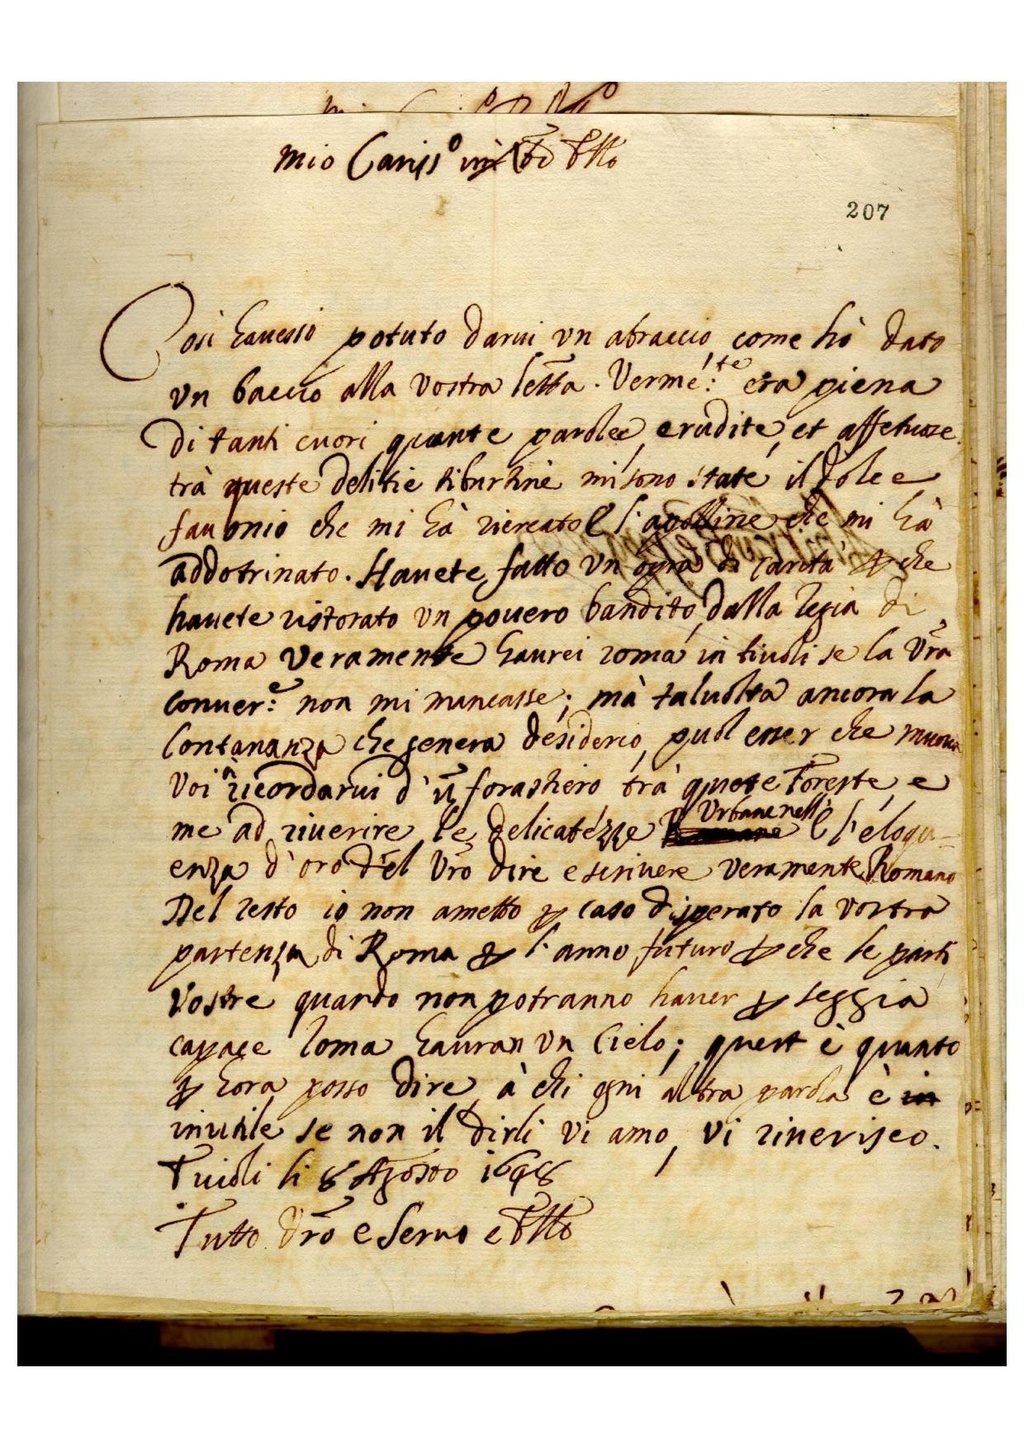 mio Cariss.o
207
Così havessio potuto darvi vn abraccio come hò dato
vn baccio alla vostra letta. Verme:te era piena
di tanti cuori quante parole, erudite, et affetuose.
trà queste delitie tiburtine mi sono state il dolce
favonio che mi hà ricreato e l'apolline che mi hà
addotrinato. Havete fatto vn opra di carità p che
havete ristorato vn povero bandito dalla regia di
Roma veramente haurei roma in tivoli se la Vra
conver:e non mi mancasse; mà taluolta ancora la
lontananza che genera desiderio, puol esser che muova
voi à ricordarvi d'ũ forastiero trà queste foreste, e
me ad riverire le delicatezze Urbane nell' e l'eloqu=
enza d'oro del Vrõ dire e scrivere veramente Romano
Del resto io non ametto p caso disperato la vostra
partenza di Roma p l'anno futuro p che le parti
vostre quando non potranno haver p seggia
capace roma hauran vn Cielo; quest è quanto
p hora posso dire, à chi ogni altra parola è in
inutile se non il dirli vi amo, vi riverisco.
Tivoli li 8 Agosto 1698
Tutto Vrõ e Servo e